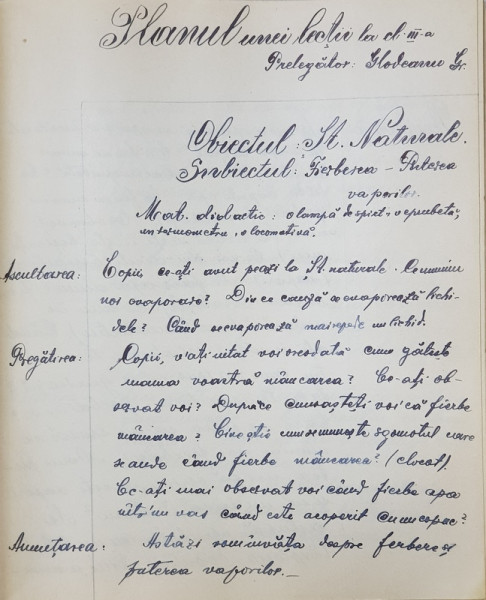 Planul unei lecții la cl. III-a
Prelegător: Glodeanu Gr.
Obiectul: Șt. Naturale.
Subiectul: Fierberea - Puterea
vaporilor.
Mat. didactic: o lampă de spirt, o eprubetă,
un termometru, o locomotivă.
Ascultarea: Copii, ce-ați avut pe azi la Șt. naturale. Ce numim
noi evaporare? Din ce cauză se evaporează lichi-
dele? Când se evaporează mai repede un lichid.
Pregătirea: Copii, v'ați uitat voi vreodată cum gătește
mama voastră mâncarea? Ce-ați ob-
servat voi? După ce cunoașteți voi că fierbe
mâncarea? Cine știe cum se numește sgomotul care
se aude când fierbe mâncarea? (clocot).
Ce-ați mai observat voi când fierbe apa
într'un vas când este acoperit cu un capac?
Anunțarea: Astăzi vom învăța despre fierberea și
puterea vaporilor. —